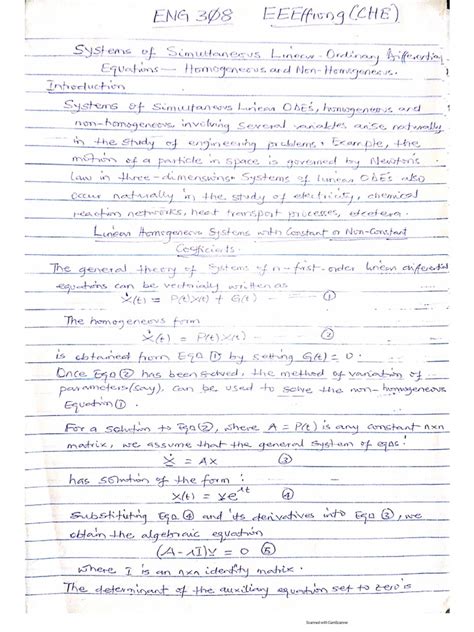 ENG 308 EEEffiong (CHE)
Systems of Simultaneous Linear Ordinary Differential
Equations — Homogeneous and Non-Homogeneous.
Introduction
Systems of Simultaneous Linear ODEs, homogeneous and
non-homogeneous, involving several variables arise naturally
in the study of engineering problems. Example, the
motion of a particle in space is governed by Newton's
law in three-dimensions. Systems of linear ODEs also
occur naturally in the study of electricity, chemical
reaction networks, heat transport processes, etcetera.
Linear Homogeneous Systems with Constant or Non-Constant
Coefficients.
The general theory of systems of n-first-order linear differential
equations can be vectorially written as
Ẋ(t) = P(t)X(t) + G(t) — ①
The homogeneous form
Ẋ(t) = P(t)X(t) — ②
is obtained from Eqn ① by setting G(t) = 0.
Once Eqn ② has been solved, the method of variation of
parameters (say), can be used to solve the non-homogeneous
Equation ①.
For a solution to Eqn ②, where A = P(t) is any constant nxn
matrix, we assume that the general system of eqns:
Ẋ = AX ③
has solution of the form:
X(t) = γe^λt ④
Substituting Eqn ④ and its derivatives into Eqn ③, we
obtain the algebraic equation
(A-λI)γ = 0 ⑤
where I is an nxn identity matrix.
The determinant of the auxiliary equation set to zero is
Scanned with CamScanner